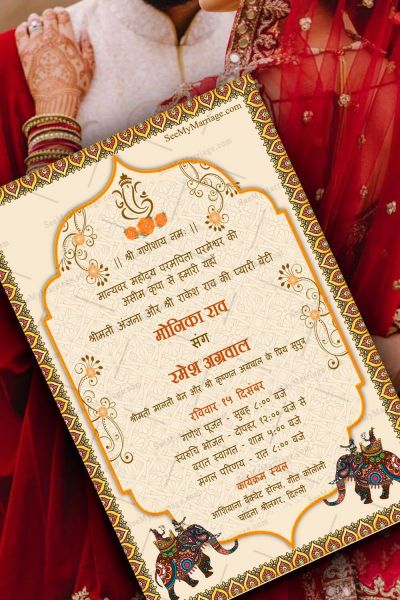 SeeMyMarriage.com
|| श्री गणेशाय नमः ||
मान्यवर महोदय परमपिता परमेश्वर की
असीम कृपा से हमारी यहाँ
श्रीमती अंजना और श्री राकेश राव की प्यारी बेटी
मोनिका राव
संग
रमेश अग्रवाल
श्रीमती मालती बेन और श्री कृष्णन अग्रवाल के प्रिय सुपुत्र
रविवार १५ दिसंबर
गणेश पूजन - सुबह ८:०० बजे
स्वरुचि भोजन - दोपहर १२:०० बजे से
बरात स्वागत - शाम ५:०० बजे
मंगल परिणय - रात ८:०० बजे
कार्यक्रम स्थल
आशियाना बैंक्वेट हॉल्स, गीत कॉलोनी
चांदना श्रीनगर, दिल्ली